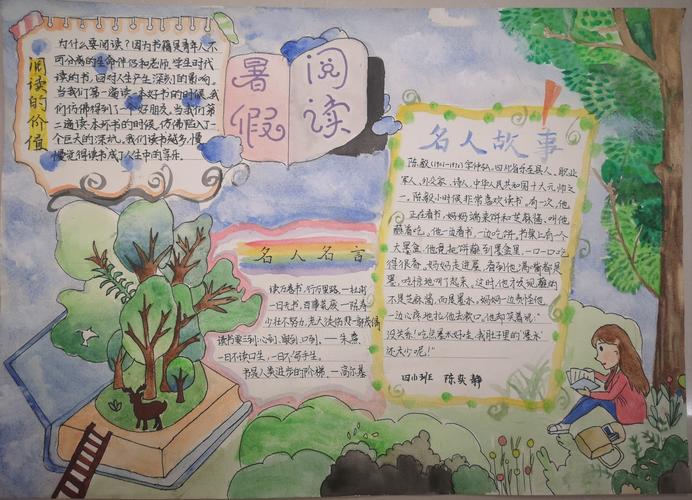 阅读的价值
为什么要阅读？因为书籍是青年人不
可分离的生命伴侣和老师，学生时代
读的书，会对人生产生深刻的影响。
当我们第一遍读一本好书的时候，我
们仿佛得到了一个好朋友，当我们第
一遍读一本坏书的时候，仿佛陷入了一
个巨大的深坑，我们读书越多，慢
慢觉得读书成了人生中的享乐。
暑假
阅读
名人名言
读万卷书，行万里路，—杜甫
一日无书，百事荒废—陈寿
少壮不努力，老大徒伤悲
读书要三到：心到，眼到，口到。—朱熹
一日不读口生，一日不写手生。
书是人类进步的阶梯，—高尔基
名人故事
陈毅
四川省乐至县人，职业
军人、外交家、诗人，中华人民共和国十大元帅之
一。陈毅小时候非常喜欢读书。有一次，他
正在看书，妈妈端来饼和芝麻酱，叫他
蘸着吃。他一边看书，一边吃饼，书桌上有一个
大墨盒，他竟把饼蘸到墨盒里，一口一口吃
得很香。妈妈走进屋，看到他满嘴都是
墨，吃惊地叫了起来，这时，他才发现蘸的
不是芝麻酱，而是墨水，妈妈一边责怪他，
一边心疼地拉他去漱口，他却笑着说：“
没关系！吃点墨水好些，我肚子里的“墨水”
还太少呢！”